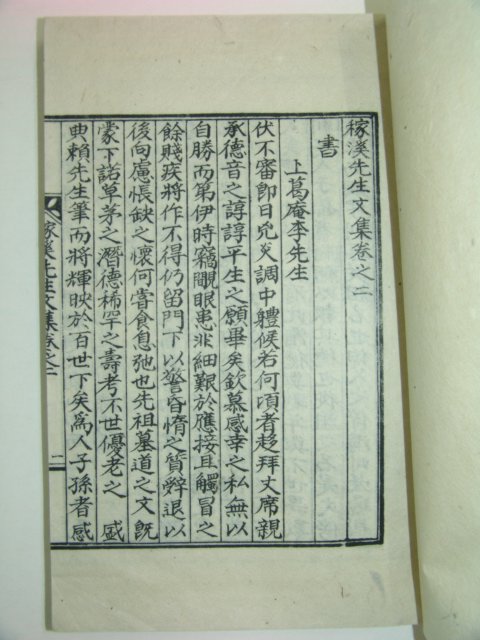 稼溪先生文集卷之二
書
上葛庵李先生
伏不審卽日兇炎調中軆候若何頃者趍拜丈席親
承德音之諄諄平生之願畢矣欽慕感幸之私無以
自勝而第伊時竊覵眼患非細艱於應接且觸冒之
餘賤疾將作不得仍留門下以警昏惰之質辭退以
後向慮悵缺之懷何嘗食息弛也先祖墓道之文旣
蒙下諾草茅之潛德稀罕之壽考不世優老之 盛
典賴先生筆而將輝映於百世下矣爲人子孫者感
稼溪先生文集卷之二 一